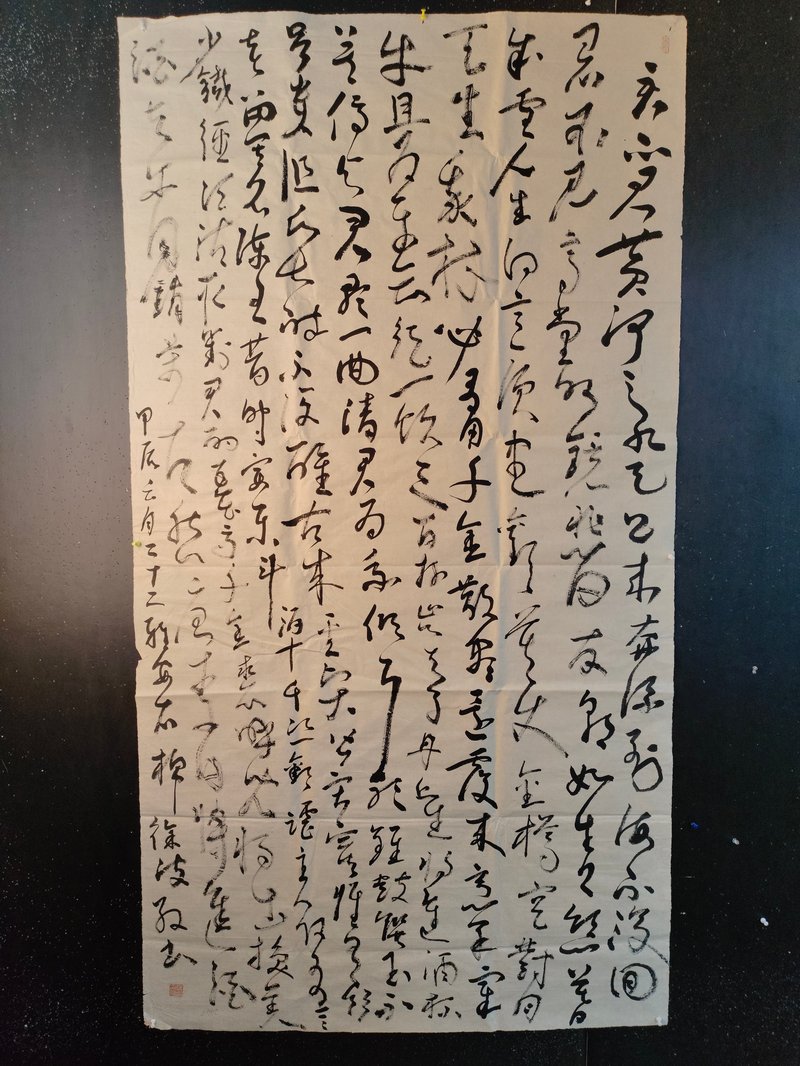 君不见黄河之水天上来奔流到海不复回
君不见高堂明镜悲白发朝如青丝暮
成雪人生得意须尽欢莫使金樽空对月
天生我材必有用千金散尽还复来烹羊宰
牛且为乐会须一饮三百杯岑夫子丹丘生将进酒杯
莫停与君歌一曲请君为我倾耳听钟鼓馔玉不
足贵但愿长醉不复醒古来圣贤皆寂寞惟有饮
者留其名陈王昔时宴平乐斗酒十千恣欢谑主人何为言
少钱径须沽取对君酌五花马千金裘呼儿将出换美
酒与尔同销万古愁 李白将进酒
甲辰 月二十二 徐 书